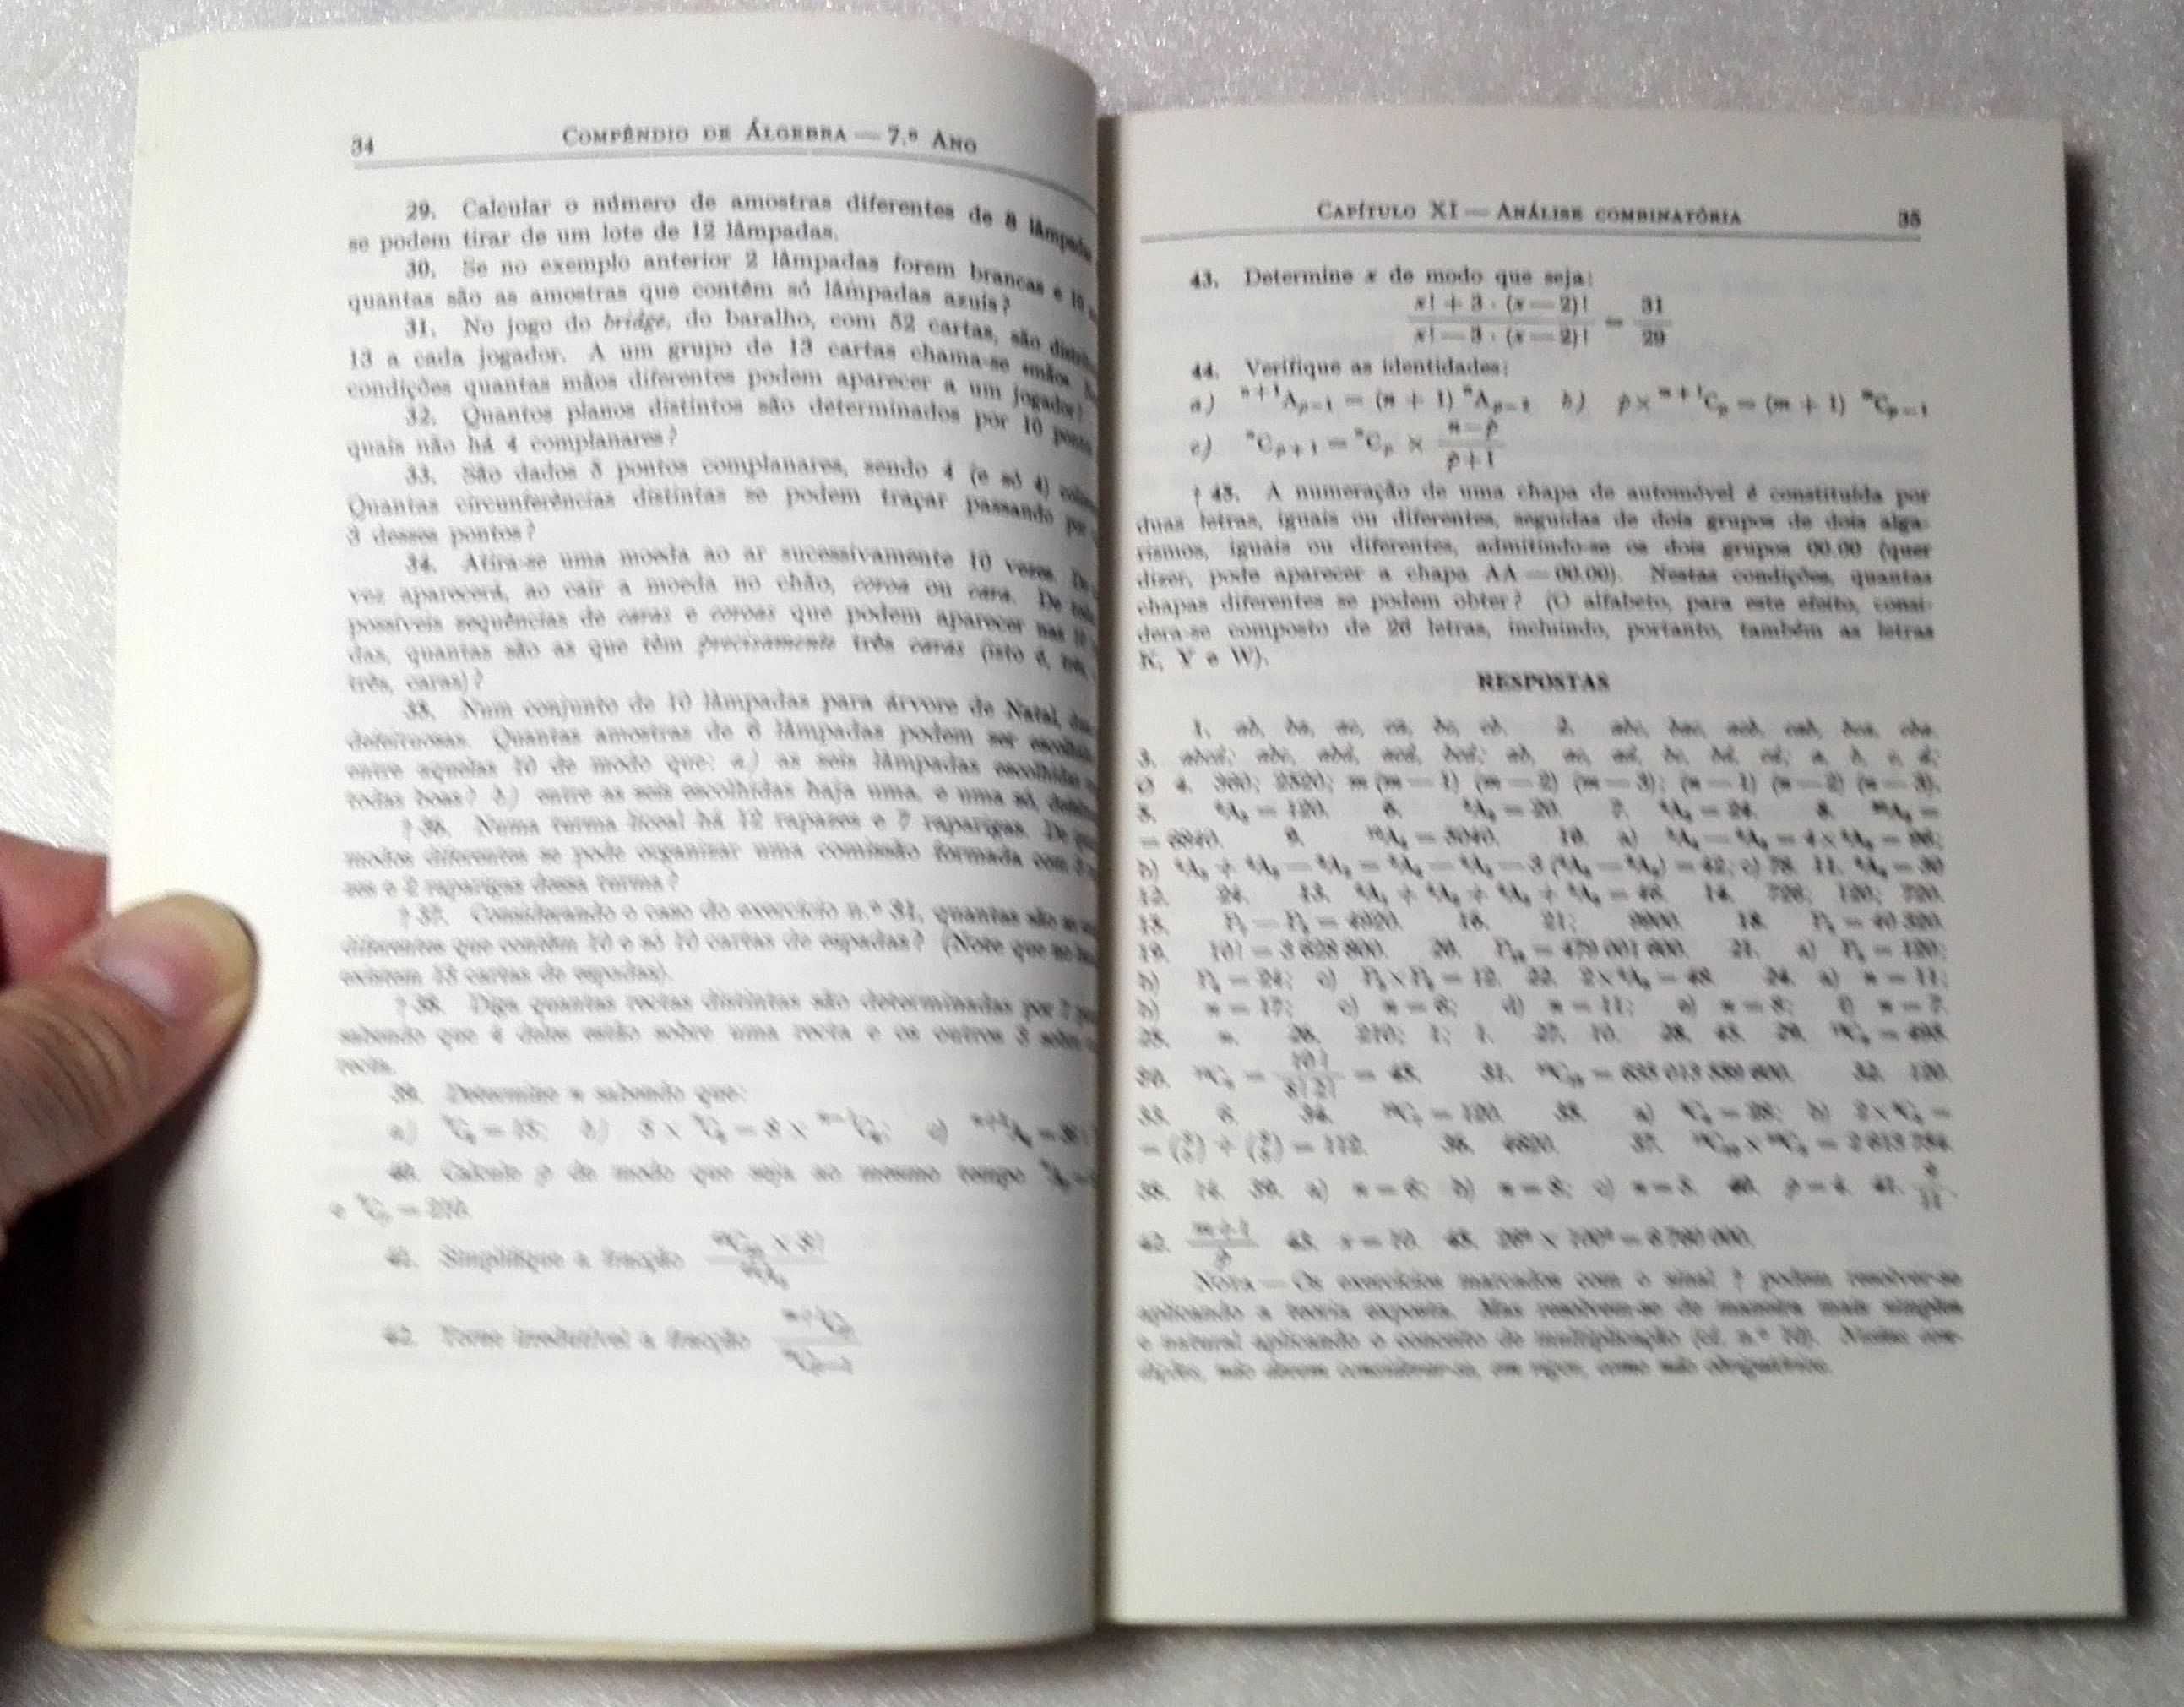 34 COMPÊNDIO DE ÁLGEBRA — 7.º ANO
29. Calcular o número de amostras diferentes de 8 lâmpadas
se podem tirar de um lote de 12 lâmpadas.
30. Se no exemplo anterior 2 lâmpadas forem brancas e 10
quantas são as amostras que contêm só lâmpadas azuis?
31. No jogo do bridge, do baralho, com 52 cartas, são
13 a cada jogador. A um grupo de 13 cartas chama-se
condições quantas mãos diferentes podem aparecer a um jogador?
32. Quantos planos distintos são determinados por 10 pontos
quais não há 4 complanares?
33. São dados 5 pontos complanares, sendo 4 (e só 4)
Quantas circunferências distintas se podem traçar passando por
3 desses pontos?
34. Atira-se uma moeda ao ar sucessivamente 10 vezes. De
vez aparecerá, ao cair a moeda no chão, coroa ou cara. De
possíveis sequências de caras e coroas que podem aparecer nas
das, quantas são as que têm precisamente três caras (isto é,
três, caras)?
35. Num conjunto de 10 lâmpadas para árvore de Natal,
defeituosas. Quantas amostras de 6 lâmpadas podem ser
entre aquelas 10 de modo que: a) as seis lâmpadas escolhidas
todas boas? b) entre as seis escolhidas haja uma, e uma só,
? 36. Numa turma liceal há 12 rapazes e 7 raparigas. De
modos diferentes se pode organizar uma comissão formada com 3
zes e 2 raparigas dessa turma?
? 37. Considerando o caso do exercício n.º 31, quantas são as
diferentes que contêm 10 e só 10 cartas de espadas? (Note que
existem 13 cartas de espadas).
? 38. Diga quantas rectas distintas são determinadas por 7
sabendo que 4 deles estão sobre uma recta e os outros 3 sobre
recta.
39. Determine n sabendo que:
40. Calcule p de modo que seja ao mesmo tempo
= 210.
41. Simplifique a fracção
42. Torne irredutível a fracção
CAPÍTULO XI — ANÁLISE COMBINATÓRIA 35
43. Determine x de modo que seja:
x! + 3 · (x — 2)! / x! — 3 · (x — 2)! = 31 / 29
44. Verifique as identidades:
a) ⁿ⁺¹Aₚ₋₁ = (n + 1) ⁿAₚ₋₂ b) p × ᵐ⁺¹Cₚ = (m + 1) ᵐCₚ₋₁
c) ⁿCₚ₊₁ = ⁿCₚ × n — p / p + 1
? 45. A numeração de uma chapa de automóvel é constituída por
duas letras, iguais ou diferentes, seguidas de dois grupos de dois alga-
rismos, iguais ou diferentes, admitindo-se os dois grupos 00.00 (quer
dizer, pode aparecer a chapa AA — 00.00). Nestas condições, quantas
chapas diferentes se podem obter? (O alfabeto, para este efeito, consi-
dera-se composto de 26 letras, incluindo, portanto, também as letras
K, Y e W).
RESPOSTAS
1. ab, ba, ac, ca, bc, cb. 2. abc, bac, acb, cab, bca, cba.
3. abcd; abc, abd, acd, bcd; ab, ac, ad, bc, bd, cd; a, b, c, d;
∅ 4. 360; 2520; m (m — 1) (m — 2) (m — 3); (n — 1) (n — 2) (n — 3).
5. = 120. 6. = 20. 7. = 24. 8.
= 6840. 9. = 5040. 10. a) = 96;
b) = 42; c) 78. 11. = 30
12. 24. 13. 14. 726; 120; 720.
15. = 4920. 16. 21; 9000. 18. = 40 320.
19. 10! = 3 628 800. 20. P₁₂ = 479 001 600. 21. a) P₅ = 120;
b) P₄ = 24; c) = 12. 22. = 48. 24. a) n = 11;
b) n = 17; c) n = 6; d) n = 11; e) n = 8; f) n = 7.
25. n. 26. 210; 1; 1. 27. 10. 28. 45. 29. ¹²C₈ = 495.
30. ¹⁰C₈ = 10! / 8! 2! = 45. 31. ⁵²C₁₃ = 635 013 559 600. 32. 120.
33. 6. 34. ¹⁰C₃ = 120. 35. a) ⁸C₆ = 28; b)
= 112. 36. 4620. 37. = 2 613 754.
38. 14. 39. a) n = 6; b) n = 8; c) n = 5. 40. p = 4. 41.
42. m + 1 / p 43. x = 10. 45. 26² × 100² = 6 760 000.
NOTA — Os exercícios marcados com o sinal ? podem resolver-se
aplicando a teoria exposta. Mas resolvem-se de maneira mais simples
e natural aplicando o conceito de multiplicação (cf. n.º 10). Nestas con-
dições, não devem considerar-se, em rigor, como